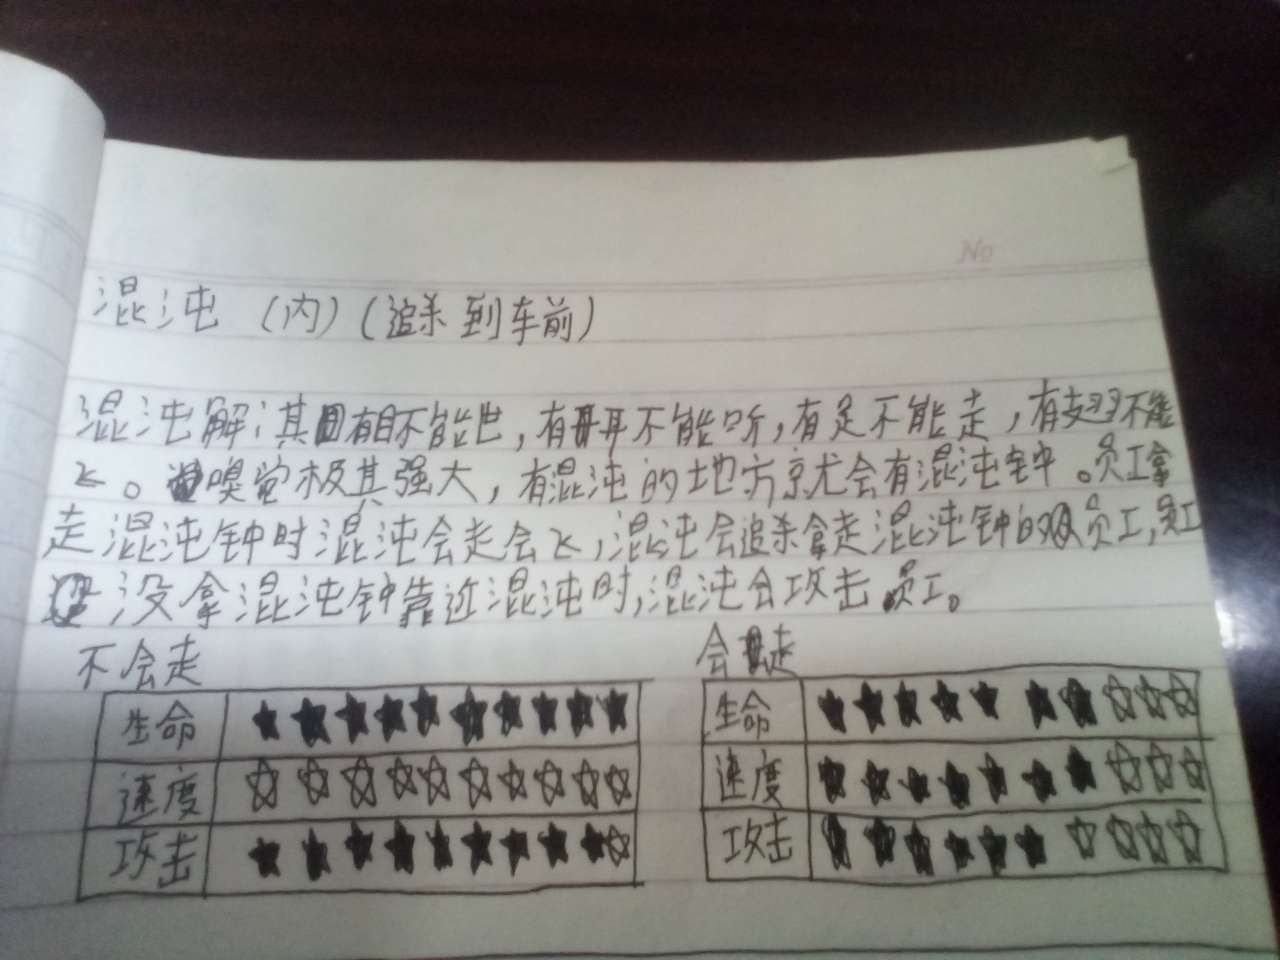 No
混沌 (内) (追杀到车前)
混沌解：其有目不能世，有耳不能听，有足不能走，有翅不能
飞。嗅觉极其强大，有混沌的地方就会有混沌钟。员工拿
走混沌钟时混沌会走会飞，混沌会追杀拿走混沌钟的员工，员工
没拿混沌钟靠近混沌时，混沌会攻击员工。
不会走 会走
生命 ★★★★★★★★★★ 生命 ★★★★★★★☆☆☆
速度 ☆☆☆☆☆☆☆☆☆☆ 速度 ★★★★★★★☆☆☆
攻击 ★★★★★★★★★☆ 攻击 ★★★★★★☆☆☆☆